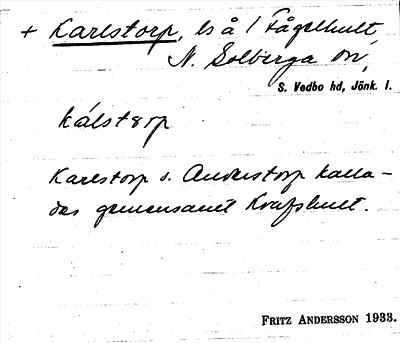 + Karlstorp, ls å 1 Fågelhult,
N. Solberga sn,
S. Vedbo hd, Jönk. l.
kálstərp
Karlstorp o. Anderstorp kalla-
des gemensamt Kråfshult.
FRITZ ANDERSSON 1933.